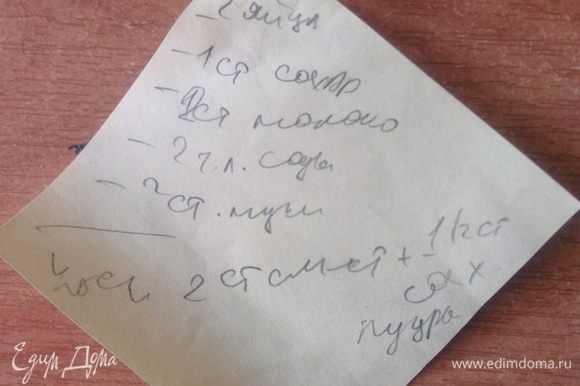 - 2 яйца
- 1 ст сахар
- 2ст молоко
- 2 ч.л. соды
- 2 ст. муки
2 ст смет + 1/2 ст
сах
пудра
Едим Дома
www.edimdoma.ru